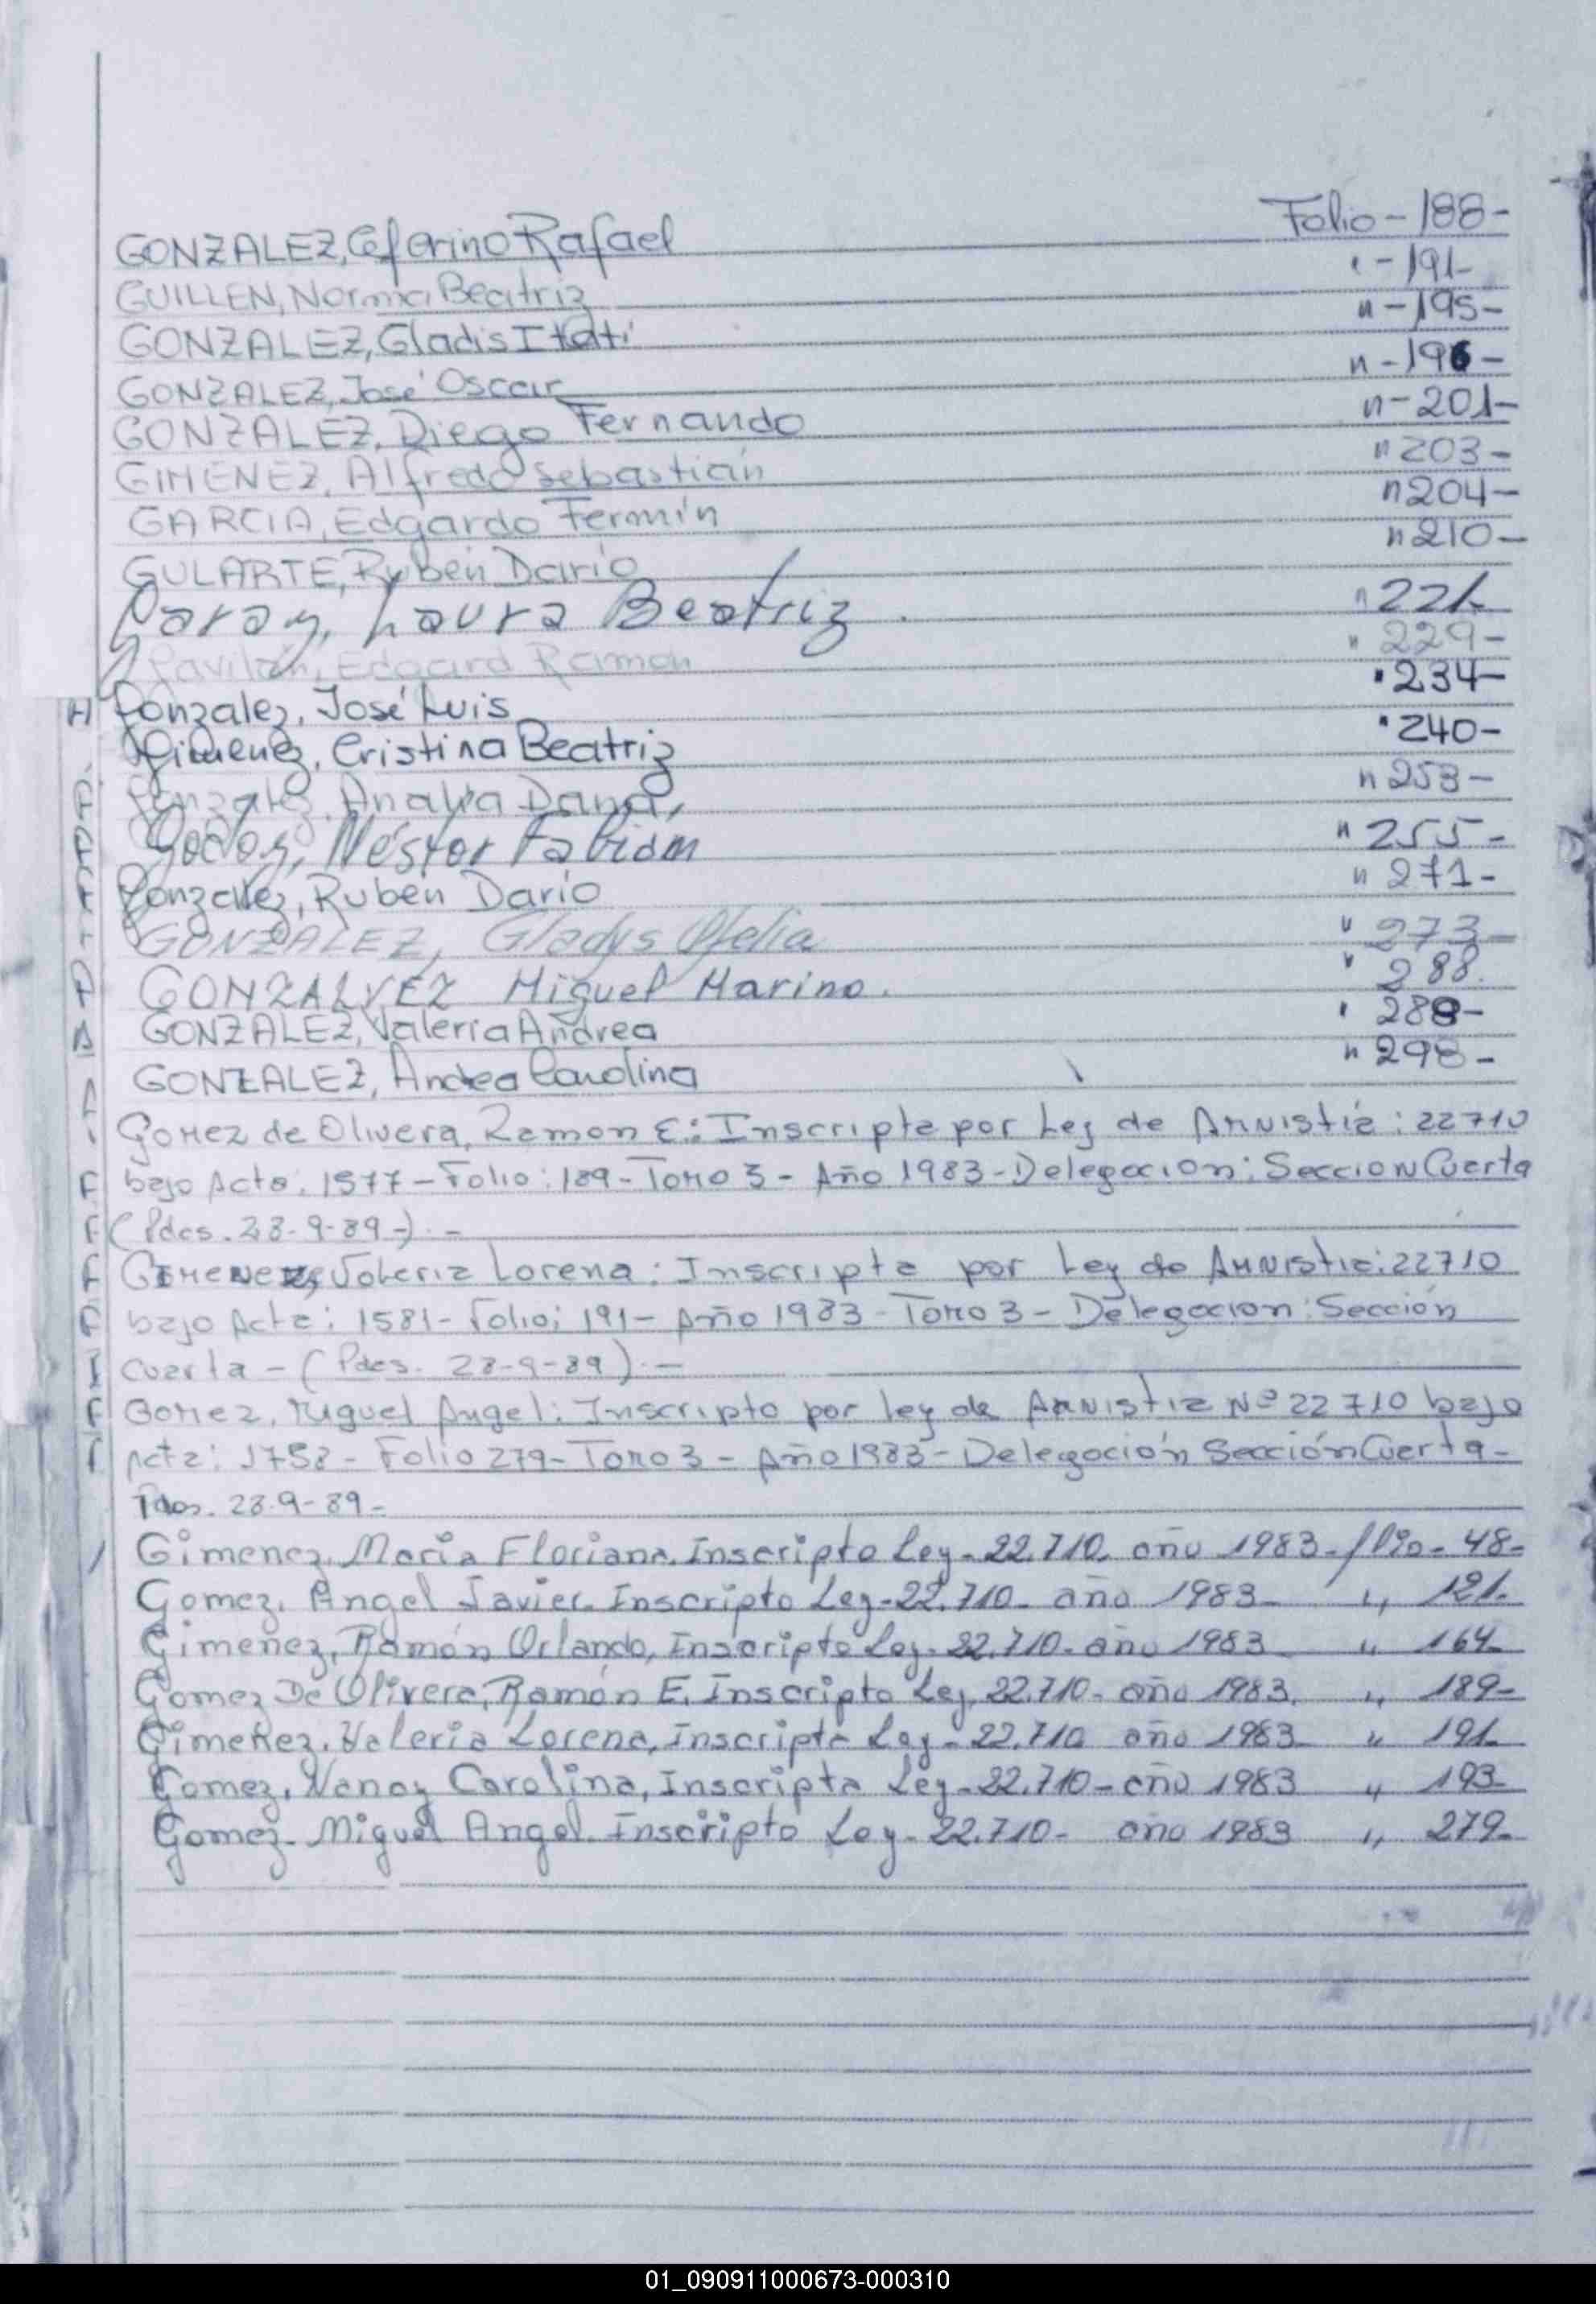 GONZALEZ, Ceferino Rafael Folio - 188 -
GUILLEN, Norma Beatriz " - 191 -
GONZALEZ, Gladis Itati " - 195 -
GONZALEZ, José Oscar " - 196 -
GONZALEZ, Diego Fernando " - 201 -
GIMENEZ, Alfredo Sebastián " 203 -
GARCIA, Edgardo Fermín " 204 -
GULARTE, Ruben Dario " 210 -
Garay, Laura Beatriz . " 221
Gavilán, Edgard Ramon " 229 -
Gonzalez, José Luis " 234 -
Gimenez, Cristina Beatriz " 240 -
Gonzalez, Analia Dana, " 253 -
Godoy, Néstor Fabian " 255 -
Gonzalez, Ruben Dario " 271 -
GONZALEZ, Gladys Ofelia " 273 -
GONZALVEZ Miguel Marino. " 288.
GONZALEZ, Valeria Andrea " 289 -
GONZALEZ, Andrea Carolina " 298 -
Gomez de Olivera, Ramon E.: Inscripta por Ley de Amnistía: 22710
bajo Acta. 1577 - Folio: 189 - Tomo 3 - Año 1983 - Delegacion: Seccion Cuarta
(Pdas. 28-9-89-). -
Gimenez, Valeria Lorena: Inscripta por Ley de Amnistia: 22710
bajo Acta: 1581 - Folio: 191 - Año 1983 - Tomo 3 - Delegacion: Sección
Cuarta - (Pdas. 28-9-89). -
Gomez, Miguel Angel: Inscripto por Ley de Amnistia Nº 22710 bajo
Acta: 1758 - Folio 279 - Tomo 3 - Año 1983 - Delegación Sección Cuarta -
Pdas. 28-9-89 -
Gimenez, Maria Floriana, Inscripta Ley - 22.710. año 1983 - folio - 48 -
Gomez, Angel Javier. Inscripto Ley - 22.710 - año 1983 " 121.
Gimenez, Ramón Orlando, Inscripto Ley - 22.710 - año 1983 " 164
Gomez De Olivera, Ramón E. Inscripto Ley. 22.710 - año 1983. " 189 -
Gimenez. Valeria Lorena, Inscripta Ley - 22.710 año 1983 " 191
Gomez, Nancy Carolina, Inscripta Ley - 22.710 - año 1983 " 193
Gomez - Miguel Angel. Inscripto Ley - 22.710 - año 1983 " 279 -
01_090911000673-000310